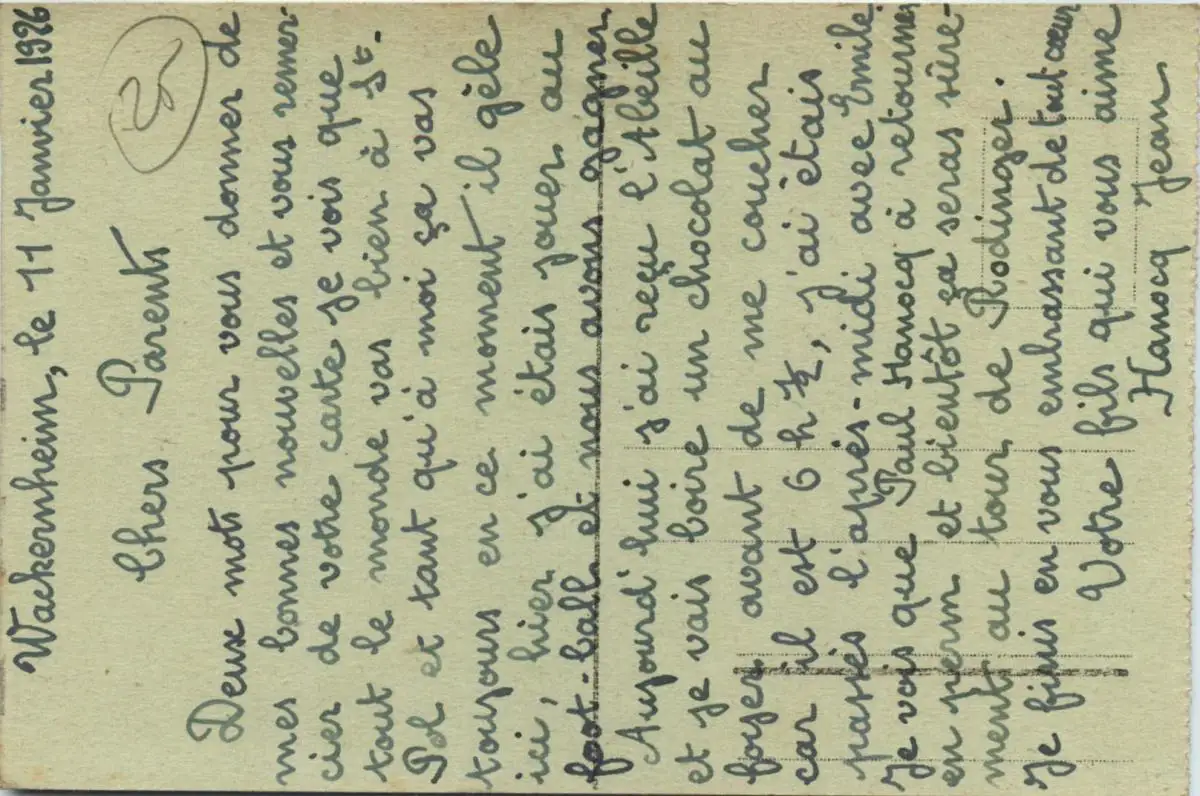 Wackernheim, le 11 Janvier 1926
25
Chers Parents
Deux mots pour vous donner de
mes bonnes nouvelles et vous remer-
cier de votre carte je vois que
tout le monde vas bien à St.
Pol et tant qu'à moi ça vas
toujours en ce moment il gèle
ici, hier j'ai étais jouer au
foot-ball et nous avons gagner
Aujourd'hui j'ai reçu l'Abeille
et je vais boire un chocolat au
foyer avant de me coucher
car il est 6 h ½, j'ai étais
passés l'après-midi avec Emile
Je vois que Paul Hanocq à retourner
en perm et bientôt ça seras sûre-
ment au tour de Rodinger.
Je finis en vous embrassant de tout cœur
Votre fils qui vous aime
Hanocq Jean